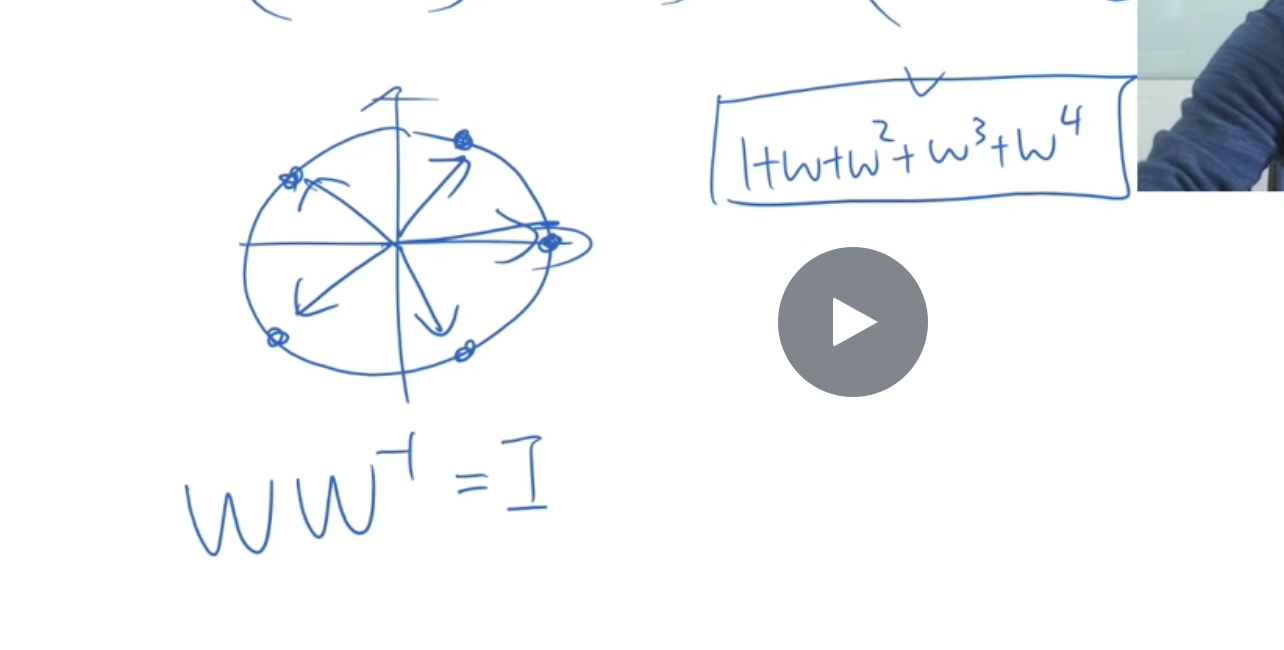 1+w+w²+w³+w⁴
WW⁻¹=I